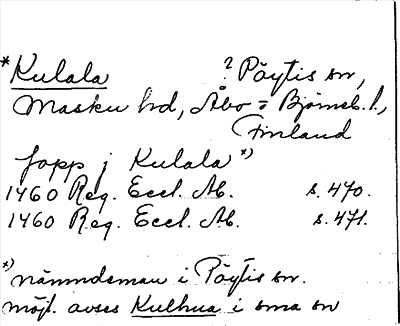 *Kulala ? Pöytis sn,
Masku hd, Åbo o Björneb. l.,
Finland
Jopp j Kulala *)
1460 Reg. Eccl. Ab. s. 470.
1460 Reg. Eccl. Ab. s. 471.
*) nämndeman i Pöytis sn.
möjl. avses Kulhua i sma sn